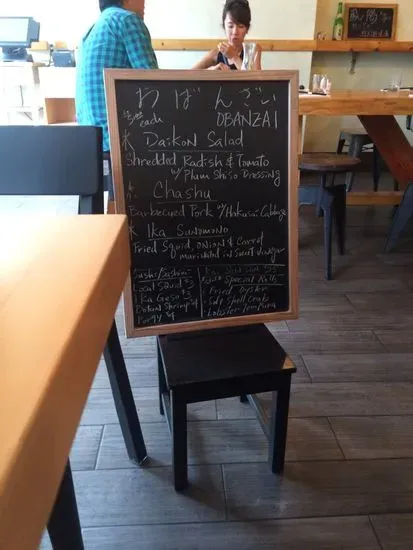 おばんざい
each
OBANZAI
* Daikon Salad
Shredded Radish & Tomato
w/ Plum Shiso Dressing
* Chashu
Barbecued Pork w/ Hakusai Cabbage
* Ika Sunomono
Fried Squid, onion & Carrot
marinated in Sweet Vinegar
Sushi/Sashimi
Local Squid $3
Ika Geso $3
Botan Shrimp
Porgy $4
Special Rolls
Fried Oyster
Soft Shell Crab
Lobster Tempura